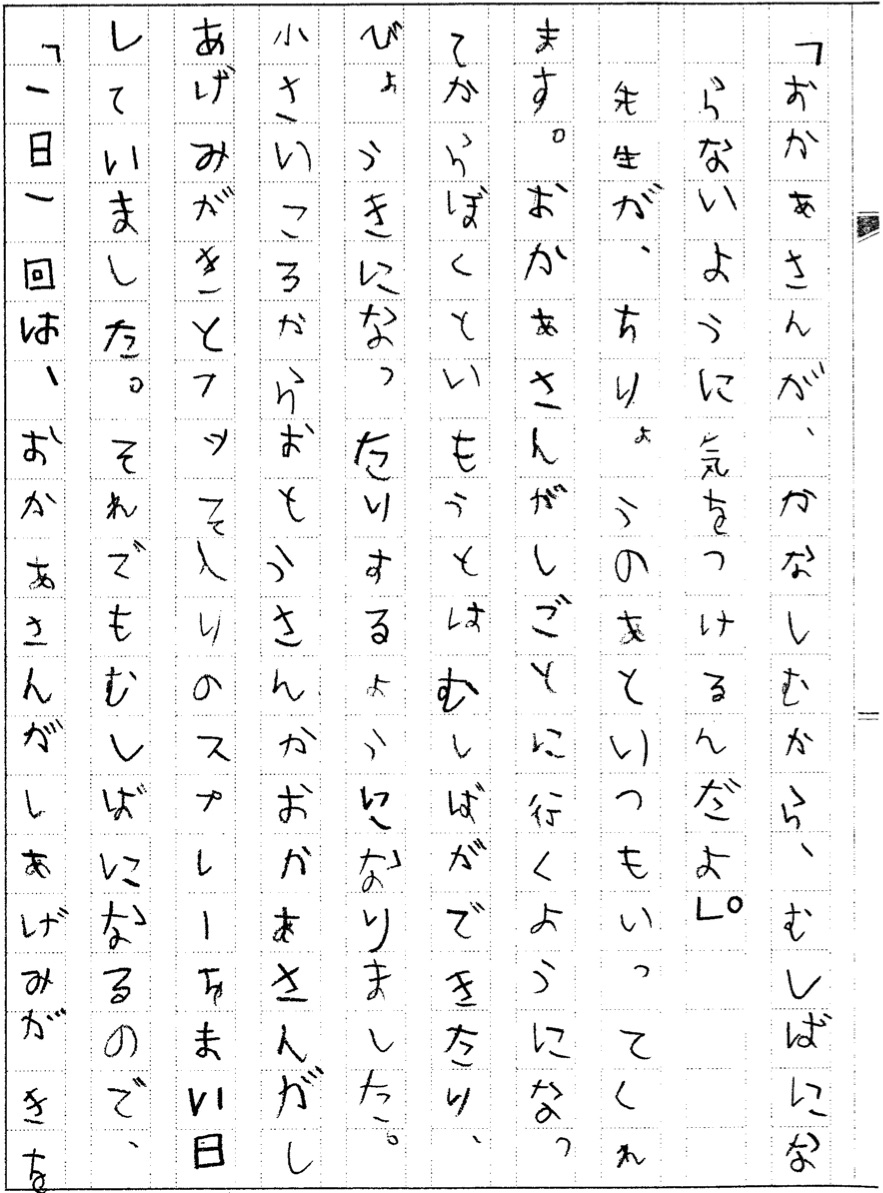 「おかあさんが、かなしむから、むしばにな
らないように気をつけるんだよ」。
先生が、ちりょうのあといつもいってくれ
ます。おかあさんがしごとに行くようになっ
てからぼくといもうとはむしばができたり、
びょうきになったりするようになりました。
小さいころからおとうさんかおかあさんがし
あげみがきとフッそ入りのスプレーをまい日
していました。それでもむしばになるので、
「一日一回は、おかあさんがしあげみがきを